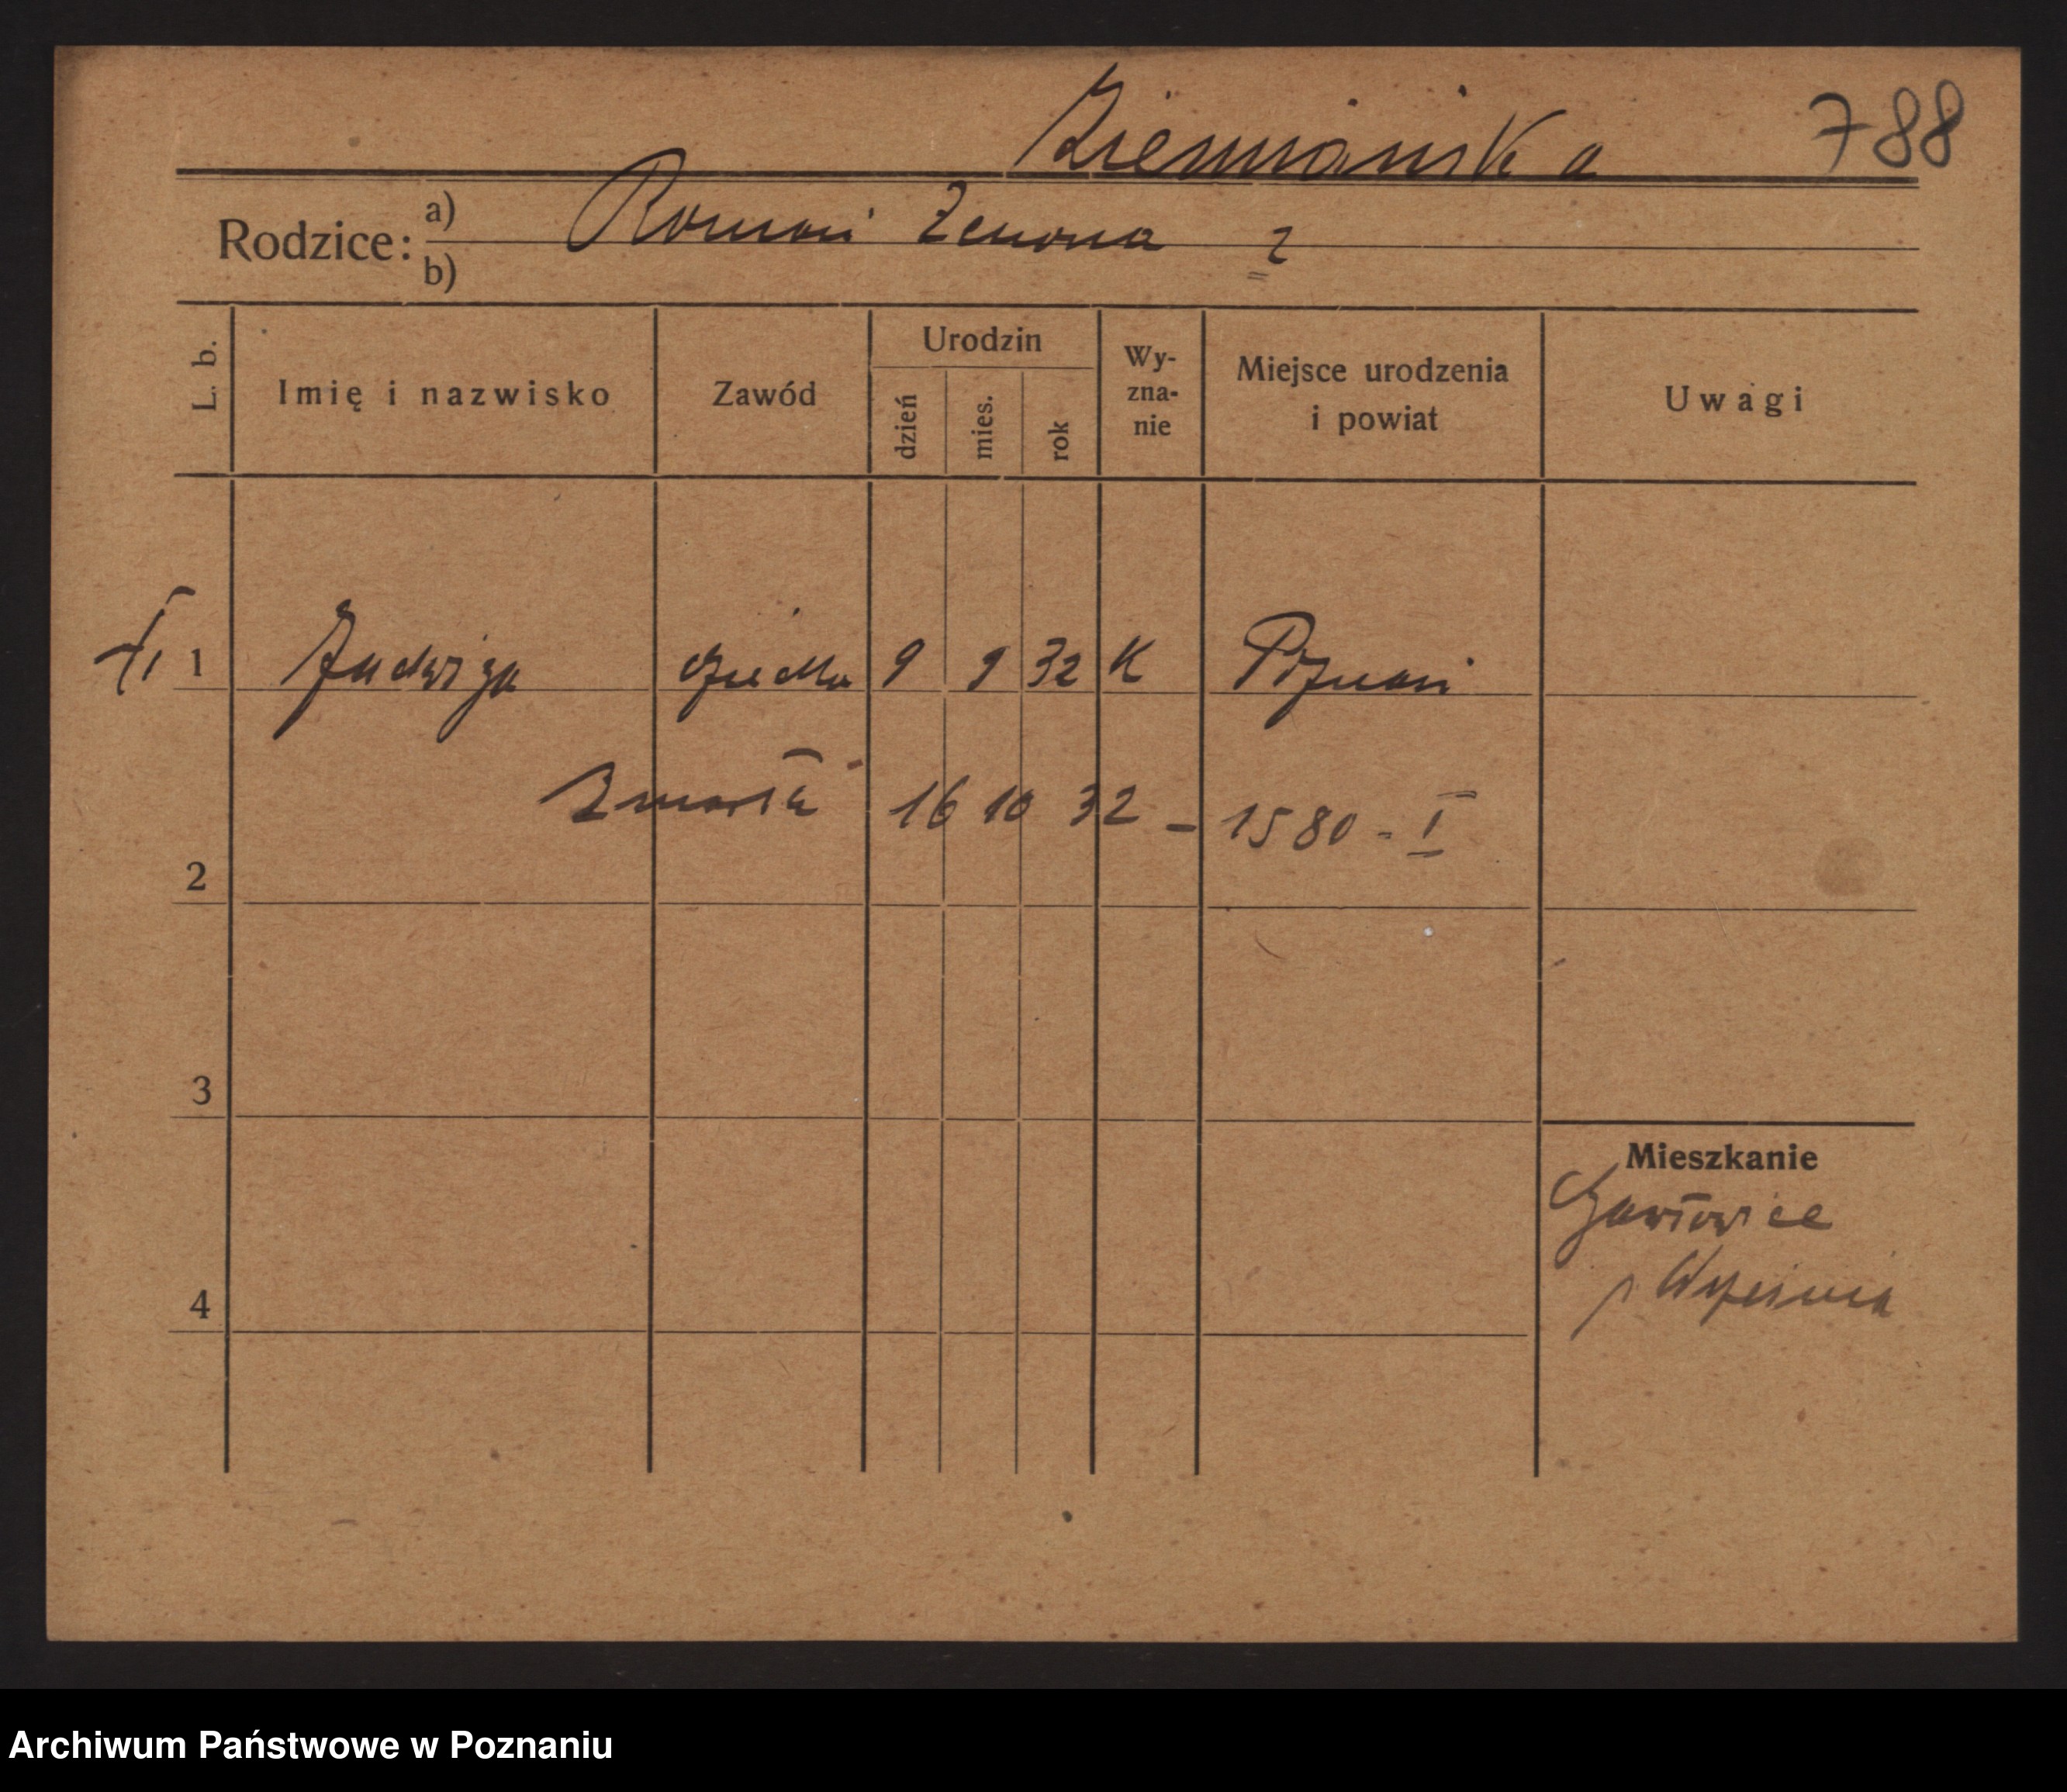 Ziemiańska 788
Rodzice: a) Roman Zenona
b)
L. b.
Imię i nazwisko
Zawód
Urodzin
dzień
mies.
rok
Wy-
zna-
nie
Miejsce urodzenia
i powiat
Uwagi
1 Jadwiga 9 9 32 K Poznań
Zmarła 16 10 32 - 1580 - I
2
3
4
Mieszkanie
Archiwum Państwowe w Poznaniu